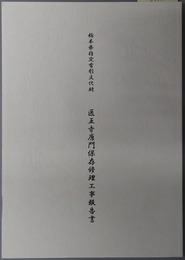 栃木県指定有形文化財
医王寺唐門保存修理工事報告書